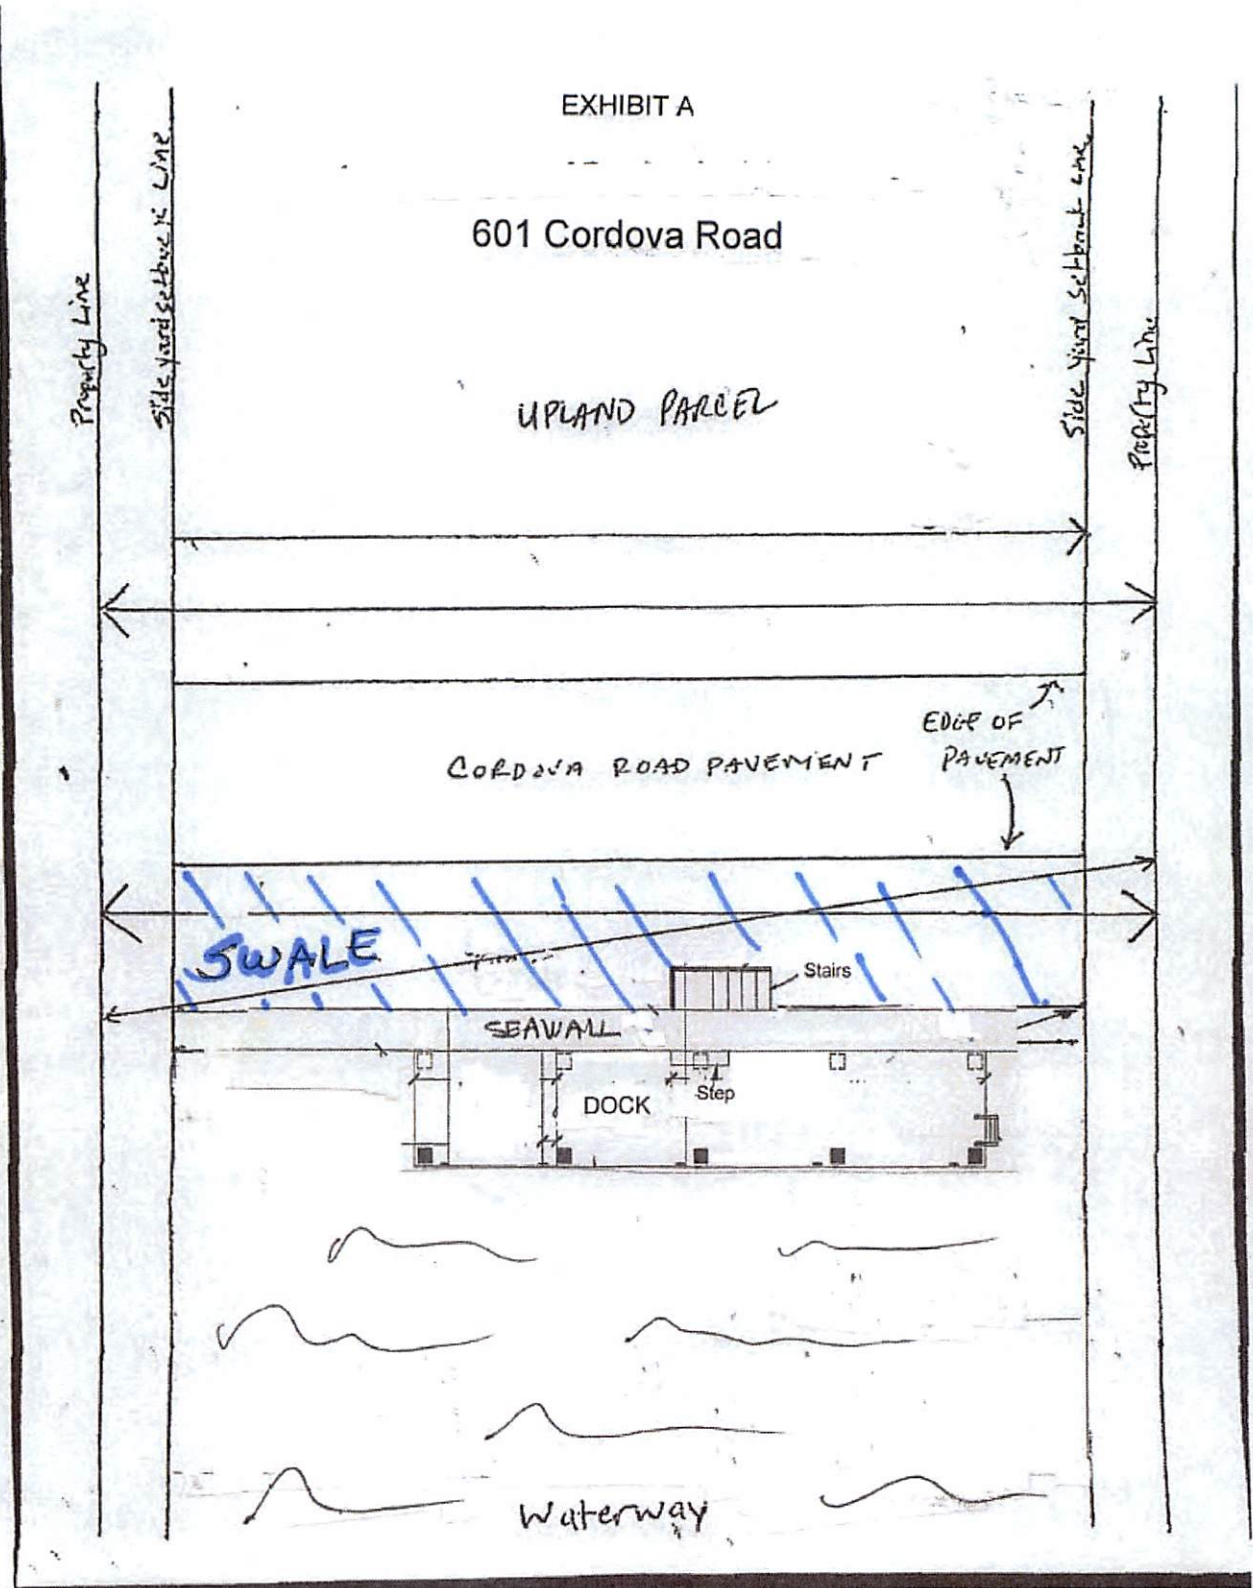 EXHIBIT A
601 Cordova Road
Property Line
Side yard setback Line
Side yard setback Line
Property Line
UPLAND PARCEL
EDGE OF
PAVEMENT
CORDOVA ROAD PAVEMENT
SWALE
Stairs
SEAWALL
DOCK
Step
Waterway